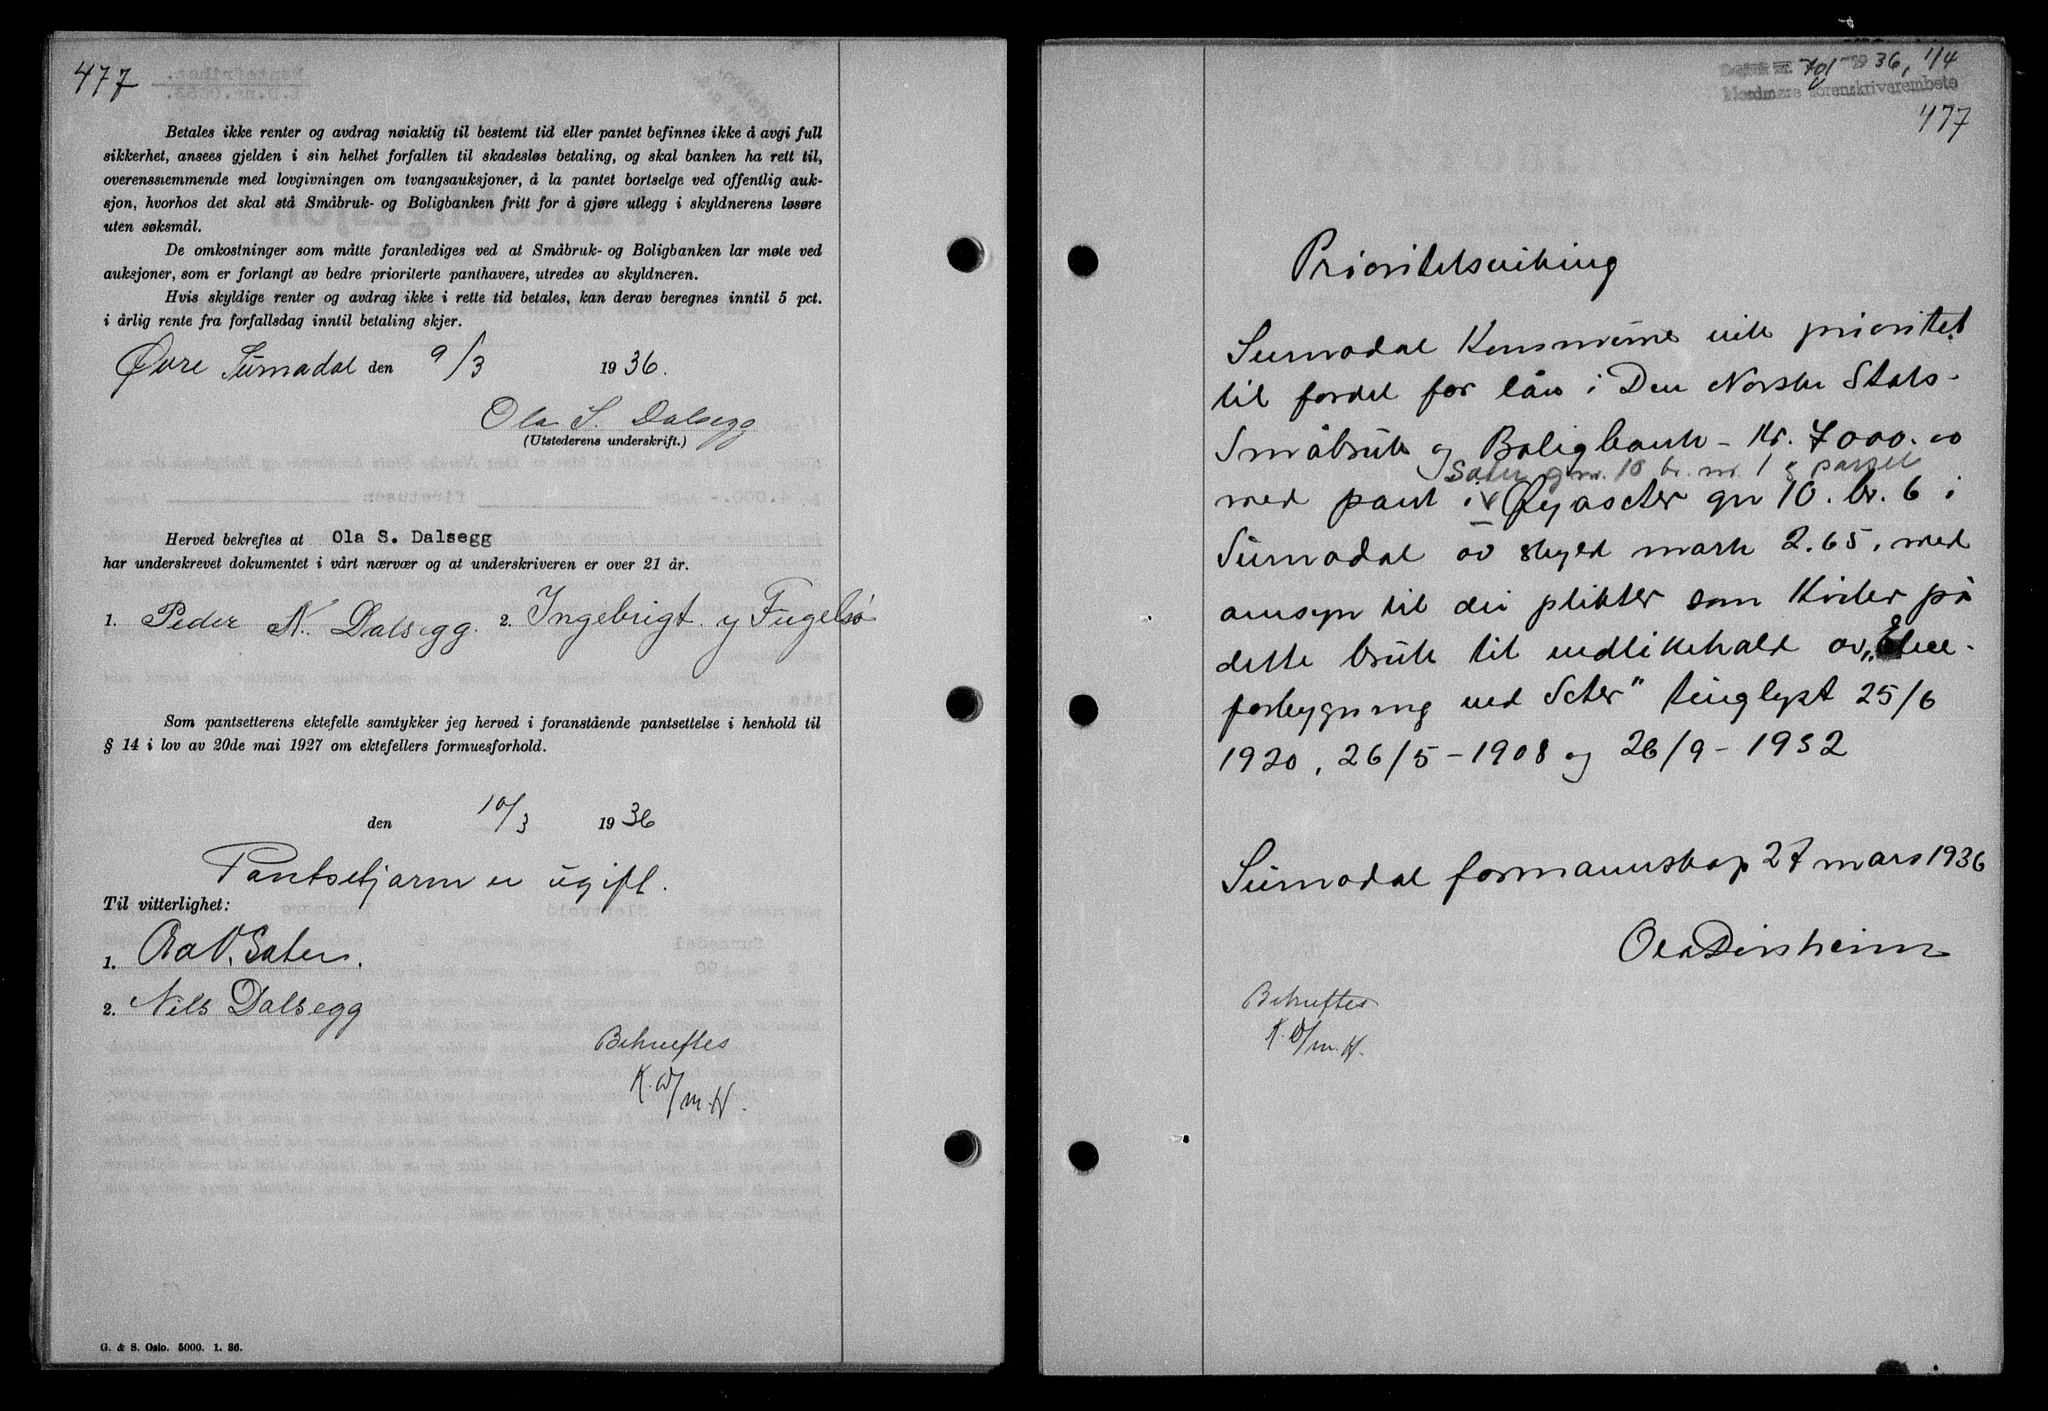 477
Betales ikke renter og avdrag nøiaktig til bestemt tid eller pantet befinnes ikke å avgi full
sikkerhet, ansees gjelden i sin helhet forfallen til skadesløs betaling, og skal banken ha rett til,
overensstemmende med lovgivningen om tvangsauksjoner, å la pantet bortselge ved offentlig auk-
sjon, hvorhos det skal stå Småbruk- og Boligbanken fritt for å gjøre utlegg i skyldnerens løsøre
uten søksmål.
De omkostninger som måtte foranlediges ved at Småbruk- og Boligbanken lar møte ved
auksjoner, som er forlangt av bedre prioriterte panthavere, utredes av skyldneren.
Hvis skyldige renter og avdrag ikke i rette tid betales, kan derav beregnes inntil 5 pct.
i årlig rente fra forfallsdag inntil betaling skjer.
Øvre Surnadal den 9/3 1936.
Ola S. Dalsegg
(Utstederens underskrift.)
Herved bekreftes at Ola S. Dalsegg
har underskrevet dokumentet i vårt nærvær og at underskriveren er over 21 år.
1. Peder N. Dalsegg. 2. Ingebrigt y Fugelsø
Som pantsetterens ektefelle samtykker jeg herved i foranstående pantsettelse i henhold til
§ 14 i lov av 20de mai 1927 om ektefellers formuesforhold.
den 10/3 1936
Pantsetjarm er ugift.
Til vitterlighet:
1. Ola V. Sæter.
2. Nils Dalsegg
Bekreftes
K. W/m.H.
G. & S. Oslo. 5000. 1. 36.
Dagbok nr. 701 1936, 1/4
Nordmøre sorenskriverembete
477
Prioritetsviking
Surnadal Kommune vik prioritet
til fordel for lån i Den Norske Stats-
Småbruk og Boligbank - Kr. 7000.00
Sæter g.nr. 10 br. nr. 1 og parsel
med pant i Øyasæter gn 10. br. 6 i
Surnadal av skyld mark 2.65, med
omsyn til dei plikter som kviler på
dette bruk til vedlikehald av "Elve-
forbygning ved Sæter" tinglyst 25/6
1920, 26/5-1908 og 26/9-1932
Surnadal formannskap 27 mars 1936
Ola Dirsheim
Bekreftes
K. W/m.H.